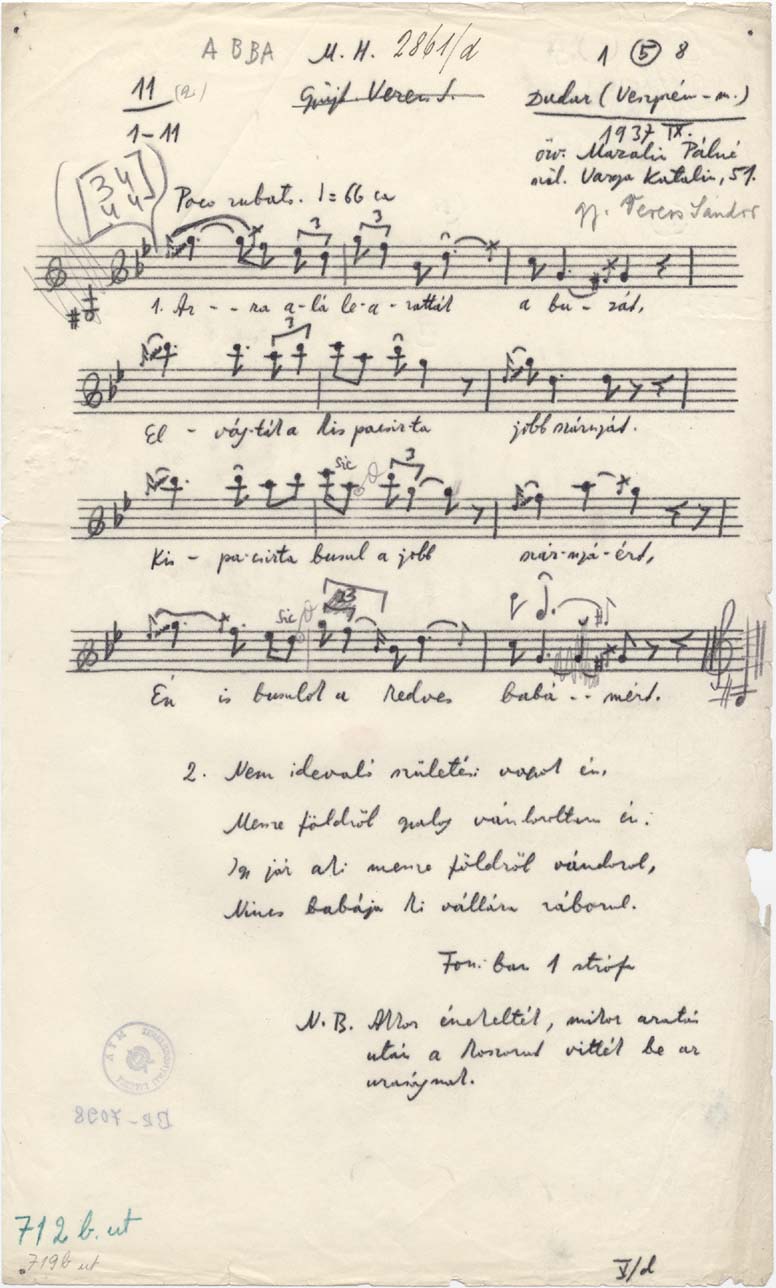 A BBA M. H. 2861/d 1 (5) 8
11 (a.) Gyűjt. Veress S. Dudar (Veszprém-m.)
1-11 1937 IX.
özv. Mazalin Pálné
szül. Varga Katalin, 51.
gy. Veress Sándor
3 4
4 4
Poco rubato. ♩=66 ca
3 3
1. Ar - - ra a-lá le-a-rattát a bu-zát,
3
El - vág-ták a kis pacsirta jobb szárnyát.
sic 3
Kis - pa-csirta busul a jobb szár-nyá-érd,
sic 3
Én is busulok a kedves babá - - mérd.
2. Nem idevaló születési vagyok én,
Messze földről gyalog vándoroltam én.
Igy jár aki messze földről vándorol,
Nincs babája ki vállára ráborul.
Fon. ban 1 strófa
N. B. Akkor énekelték, mikor aratás
után a koszorut vitték be az
uraságnak.
BR-7098
712 b. ut
719b ut
V/d